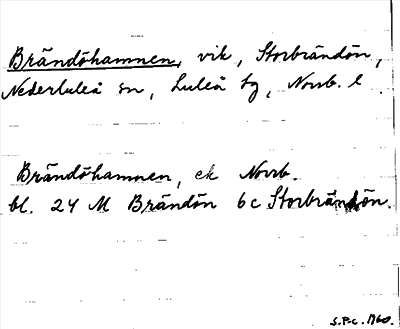 Brändöhamnen, vik, Storbrändön,
Nederluleå sn, Luleå tg, Norrb. l.
Brändöhamnen, ek Norrb.
bl. 24 M Brändön 6 c Storbrändön.
S.P-c. 1960.